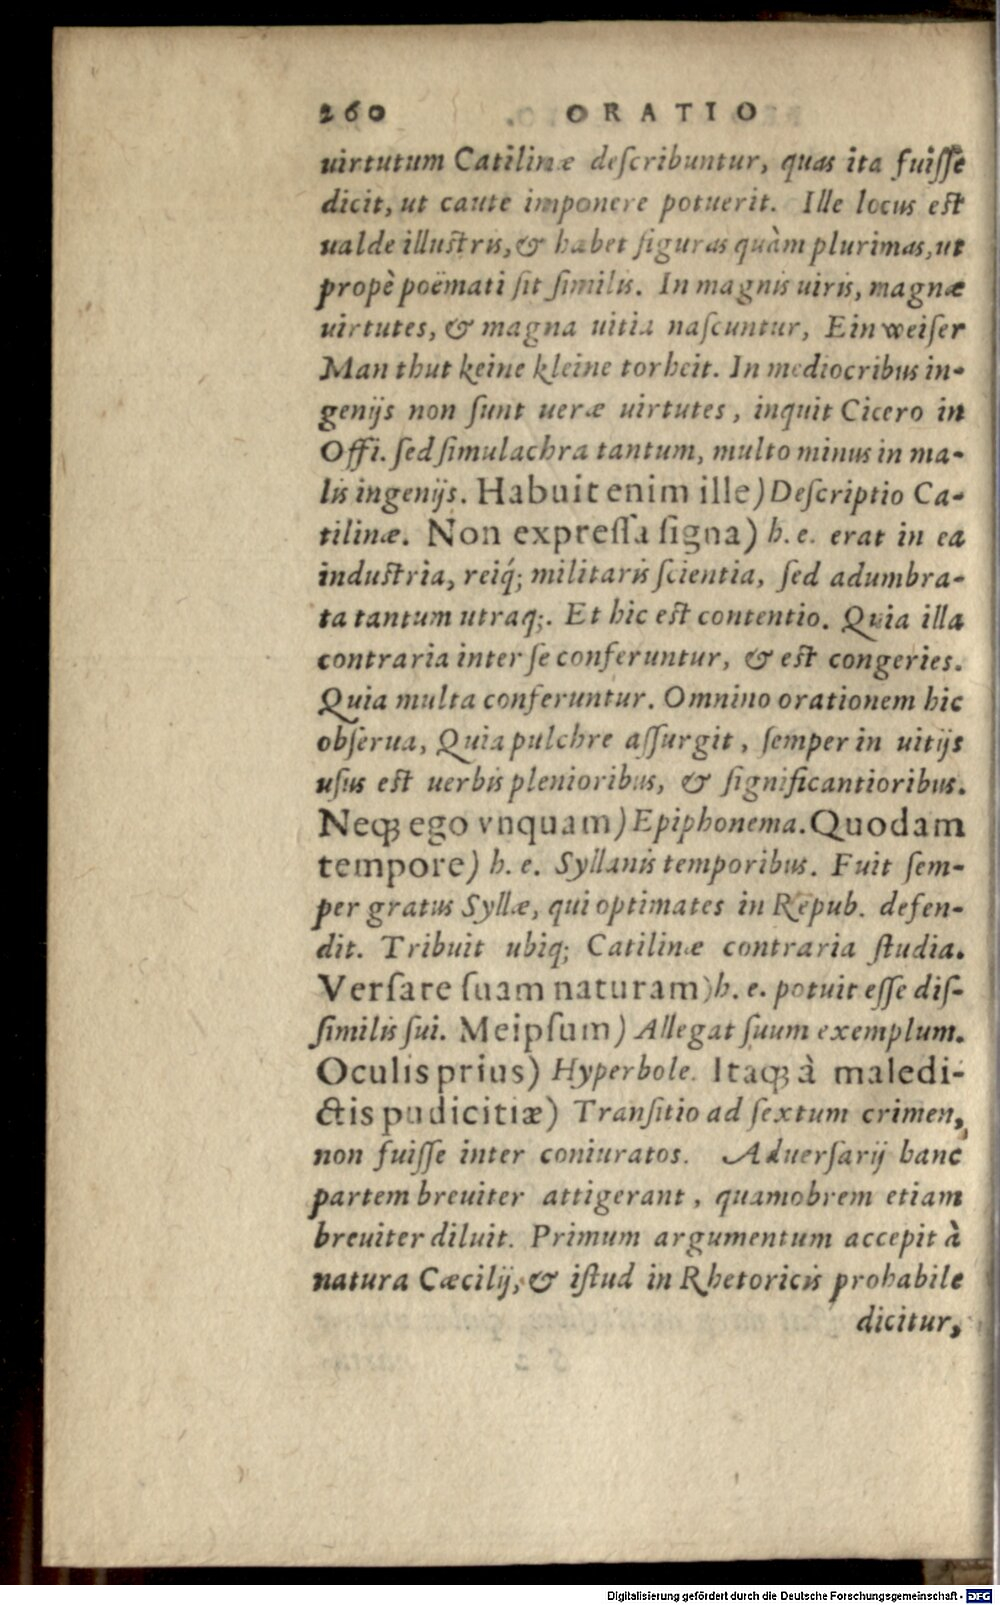 260 ORATIO
uirtutum Catilinæ deſcribuntur, quas ita fuiſſe
dicit, ut caute imponere potuerit. Ille locus eſt
ualde illuſtris, & habet figuras quàm plurimas, ut
propè poëmati ſit ſimilis. In magnis uiris, magnæ
uirtutes, & magna uitia naſcuntur, Ein weiſer
Man thut keine kleine torheit. In mediocribus in-
genijs non ſunt ueræ uirtutes, inquit Cicero in
Offi. ſed ſimulachra tantum, multo minus in ma-
lis ingenijs. Habuit enim ille) Deſcriptio Ca-
tilinæ. Non expreſſa ſigna) h. e. erat in ea
induſtria, reiq́; militaris ſcientia, ſed adumbra-
ta tantum utraq;. Et hic eſt contentio. Quia illa
contraria inter ſe conferuntur, & eſt congeries.
Quia multa conferuntur. Omnino orationem hic
obſerua, Quia pulchre aſſurgit, ſemper in uitijs
uſus eſt uerbis plenioribus, & ſignificantioribus.
Neqꝫ ego vnquam) Epiphonema. Quodam
tempore) h. e. Syllanis temporibus. Fuit ſem-
per gratus Syllæ, qui optimates in Repub. defen-
dit. Tribuit ubiq; Catilinæ contraria ſtudia.
Verſare ſuam naturam) h. e. potuit eſſe diſ-
ſimilis ſui. Meipſum) Allegat ſuum exemplum.
Oculis prius) Hyperbole. Itaqꝫ à maledi-
ctis pudicitiæ) Tranſitio ad ſextum crimen,
non fuiſſe inter coniuratos. Aduerſarij hanc
partem breuiter attigerant, quamobrem etiam
breuiter diluit. Primum argumentum accepit à
natura Cæcilij, & iſtud in Rhetoricis probabile
dicitur,
Digitalisierung gefördert durch die Deutsche Forschungsgemeinschaft - DFG